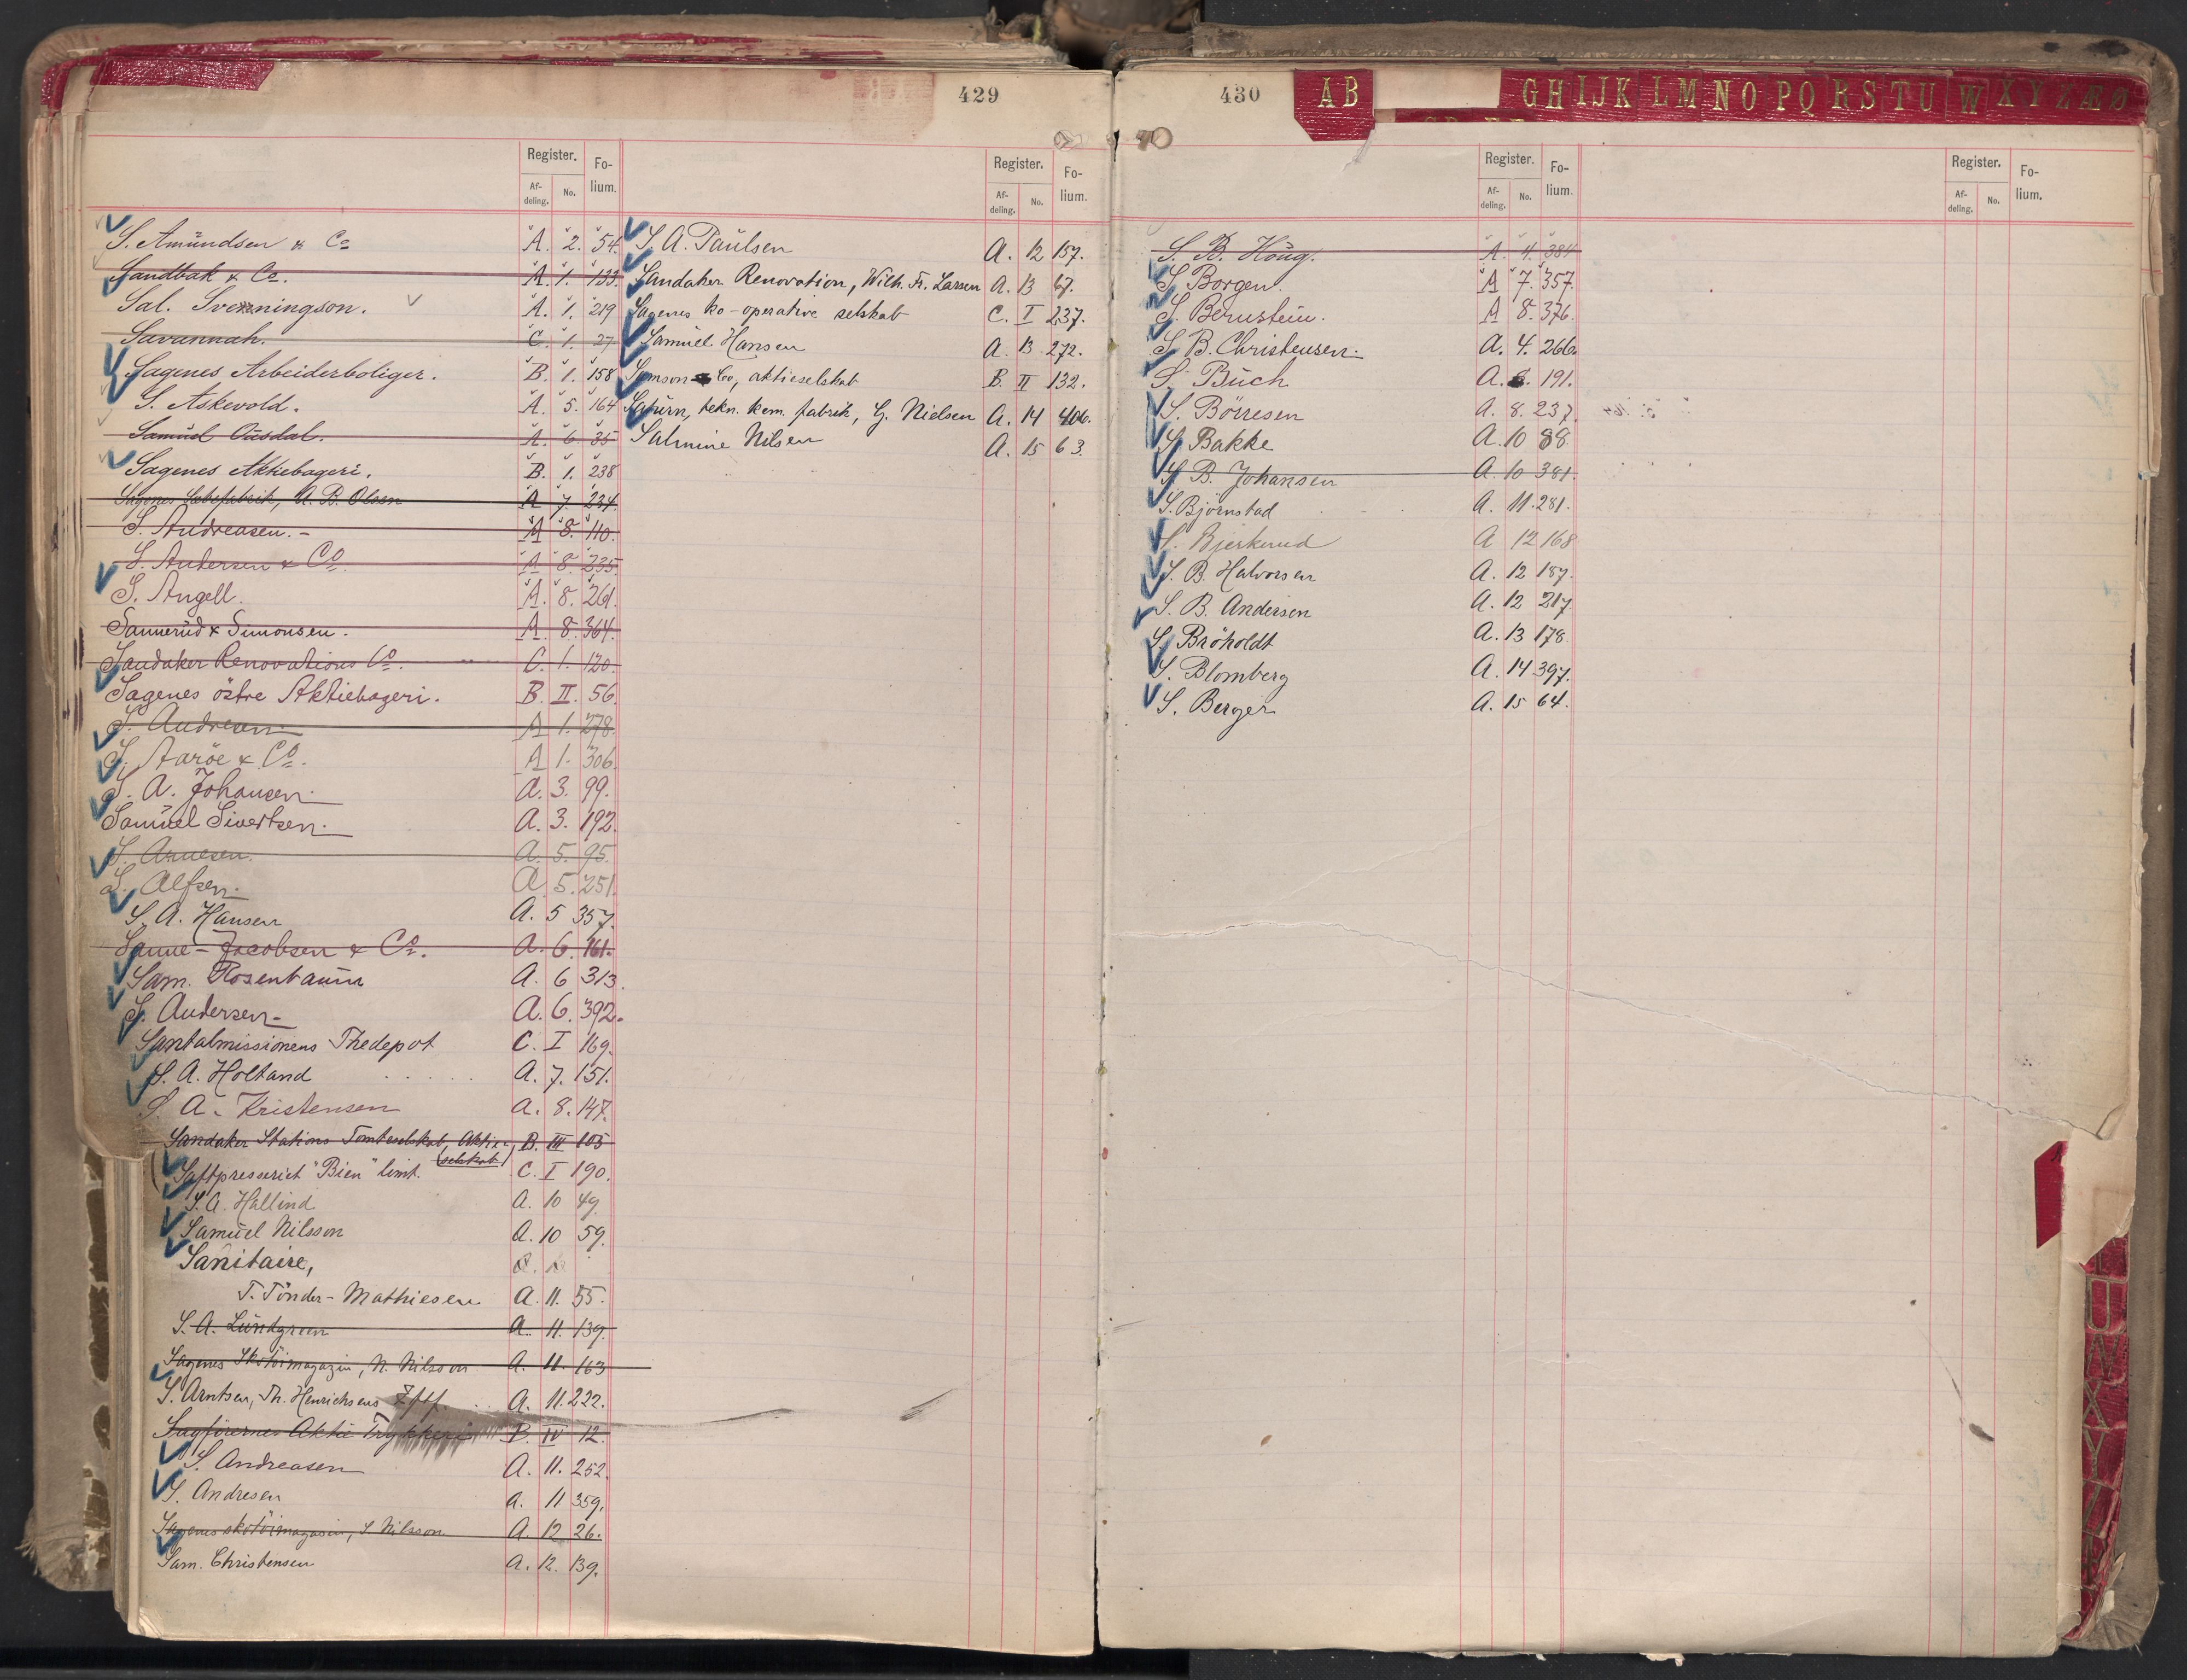 429
Register. Fo-
lium.
Af-
deling. No.
S. Amündsen & Co A. 2. 54.
Sandbak & Co. A. 1. 133.
Sal. Svenningson. A. 1. 219
Savannah. C. 1. 27
Sagenes Arbeiderboliger. B. 1. 158
S. Askevold. A. 5. 164
Samüel Ousdal. A. 6. 35
Sagenes Aktiebageri. B. 1. 238
Sagenes Sæbefabrik, A. B. Olsen A 7. 234
S. Andreasen. A 8. 110.
S. Andersen & Co A 8. 235.
S. Angell. A. 8. 261.
Sannerüd & Simonsen. A. 8. 364.
Sandaker Renovations Co. C. 1. 120.
Sagenes östre Aktiebageri. B. II. 56.
S. Andresen A 1. 278
S. Aaröe & Co. A 1. 306.
S. A. Johansen. A. 3. 99.
Samüel Sivertsen. A. 3. 192.
S. Arnesen. A. 5. 95.
S. Alfsen. A 5. 251.
S. A. Hansen A. 5 357.
Sanne-Jacobsen & Co. A. 6. 161.
Sam. Rosenbaüm A. 6 313.
S. Andersen A. 6. 392.
Santalmissionens Thedepot C. I 169.
S. A. Holtand A. 7. 151.
S. A. Kristensen A. 8. 147.
Sandaker Stations Tomteselskab, Aktie- B. III 105
selskab
Saftpresseriet "Bien" limt. C. I 190.
S. A. Hallind A. 10 49.
Samüel Nilsson A. 10 59.
Sanitaire,
T. Tönder-Mathiesen A. 11. 55.
S. A. Lündgreen A. 11. 139.
Sagenes Skotöimagazin, N. Nilsson A. 11. 163
S. Arntsen, Th. Henrichsens Eftf. A. 11. 222.
Sagförernes Aktie Trykkeri B. IV 12.
S. Andreasen A. 11. 252.
S. Andresen A. 11 359.
Sagenes skotöimagasin, S Nilsson A. 12 26.
Sam. Christensen A. 12. 139.
Register. Fo-
lium.
Af-
deling. No.
S. A. Paülsen A. 12 157.
Sandaker Renovation, Wilh. Fr. Larsen A. 13 67.
Sagenes ko-operative selskab C. I 237.
Samüel Hansen A. 13 272.
Samson & Co, aktieselskab B. II 132.
Satürn, tekn. kem. fabrik, G. Nielsen A. 14 406.
Salmine Nilsen A. 15 63.
430
AB GH IJK L M N O P Q R S T U W X Y Z Æ Ø
Register. Fo-
lium.
Af-
deling. No.
S. B. Höüg. A. 4. 384
S. Borgen. A 7. 357.
S. Bernstein. A 8. 376.
S. B. Christensen. A. 4. 266.
S. Büch A. 8. 191.
S. Börresen A. 8. 237.
S. Bakke A. 10 88
S. B. Johansen A. 10 381.
S. Björnstad A. 11. 281.
S. Bjerkerud A 12 168
S. B. Halvorsen A. 12 187.
S. B. Andersen A. 12 217
S. Bröholdt A. 13 178.
S. Blomberg A. 14 397.
S. Berger A. 15 64.
Register. Fo-
lium.
Af-
deling. No.
U W X Y